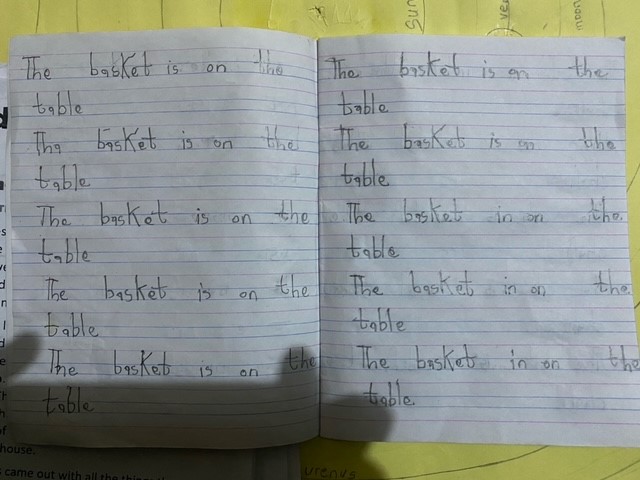 The basket is on the
table
Tha basket is on the
table
The basket is on the
table
The basket is on the
table
The basket is on the
table
The basket is on the
table
The basket is on the
table
The basket in on the.
table
The basket in on the
table
The basket in on the
table.
sun
moon
urenus
house.
s came out with all the